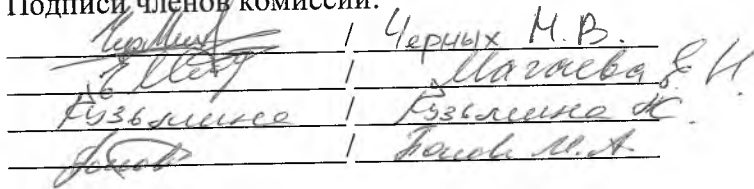 Подписи членов комиссии:
/ Черных М.В.
/ Магаева Е.Н.
Кузьмина / Кузьмина Ж.
/ М.А.